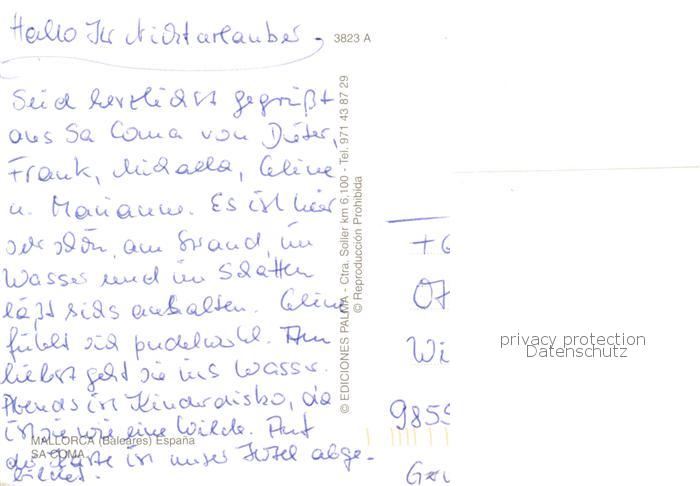 Hallo Ihr Nichturlauber,
3823 A
Seid herzlichst gegrüßt
aus Sa Coma von Dieter,
Frank, Michaela, Celine
u. Marianne. Es ist hier
sehr schön, am Strand, im
Wasser und im Schatten
läßt sichs aushalten. Celine
fühlt sich pudelwohl. Am
liebst geht sie ins Wasser.
Abends ist Kinderdisko, da
ist sie wie eine Wilde. Auf
der Karte ist unser Hotel abge-
bildet.
MALLORCA (Baleares) España
SA COMA
© EDICIONES PALMA - Ctra. Soller km 6,100 - Tel. 971 43 87 29
© Reproducción Prohibida
07
Wi
9855
privacy protection
Datenschutz